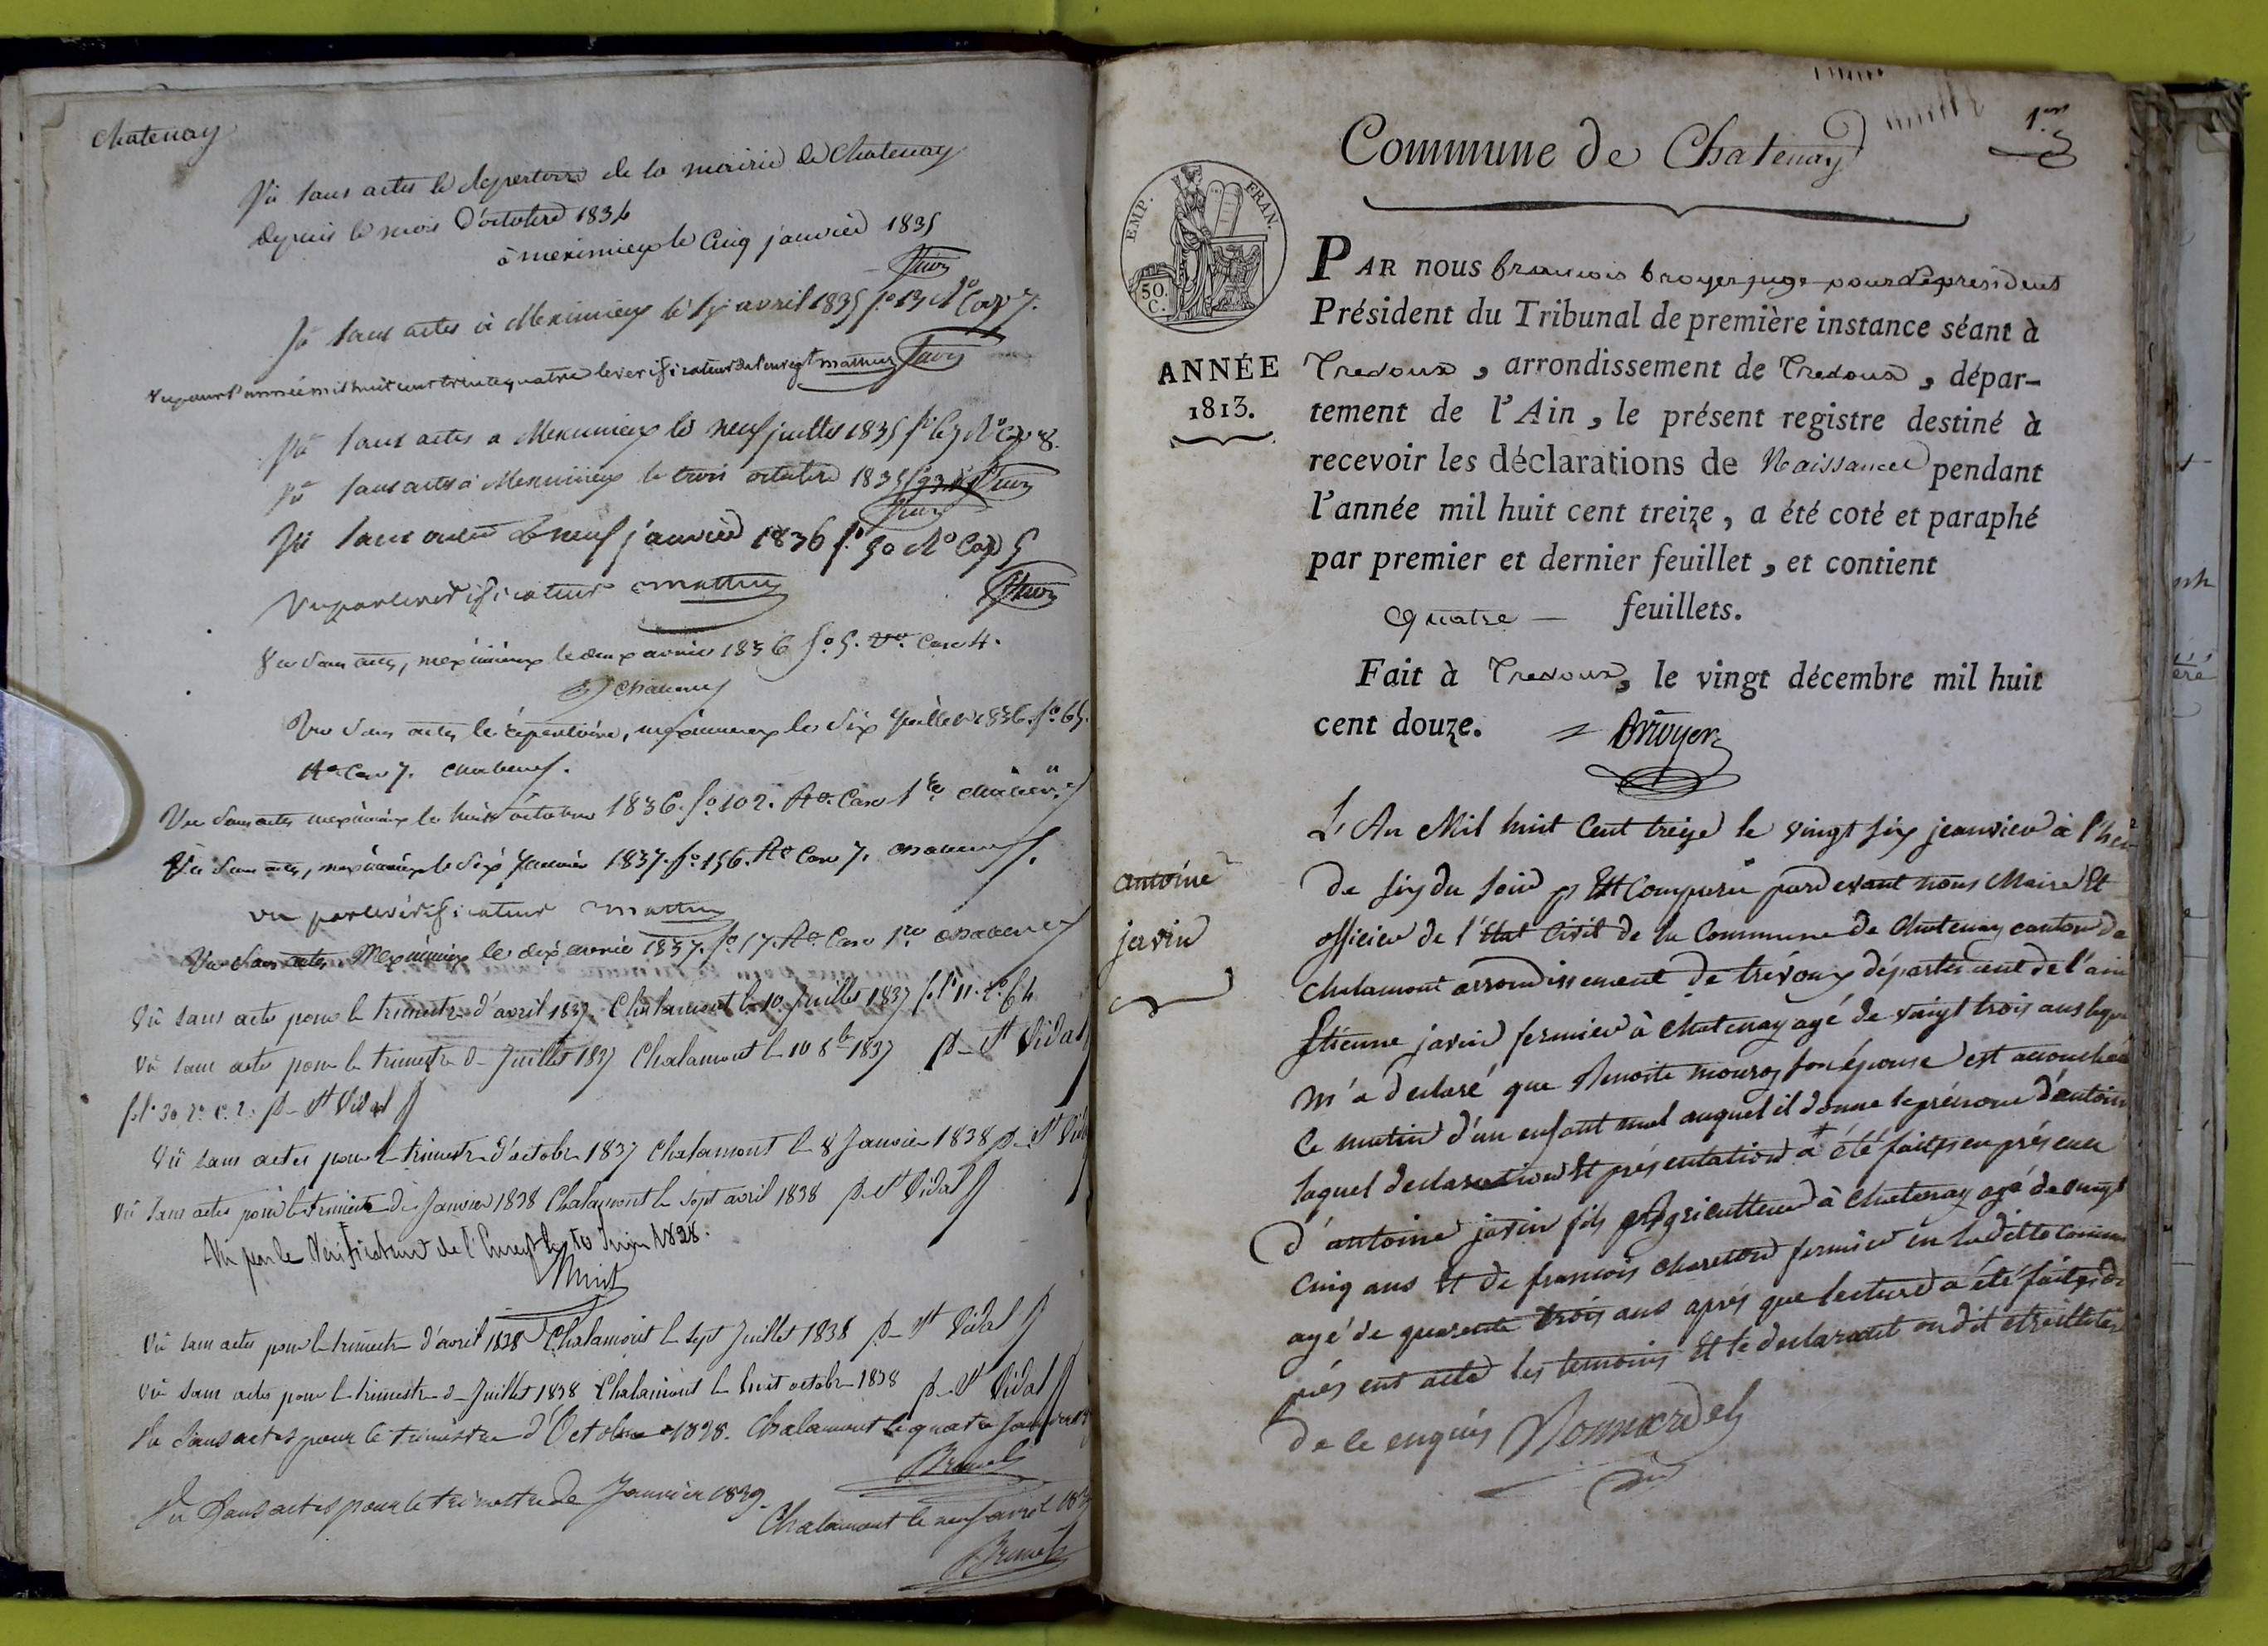 Chatenay
Vû sans actes le repertoire de la mairie de Chatenay
depuis le mois d'octobre 1834
à meximieux le Cinq janvier 1835
Vû sans actes à Meximieux le avril 1835 f.° 13 R° Case 7.
Vu pour l'année mil huit cent trente quatre le verificateur de l'enregt mathieu
Vû sans actes a Meximieux le neuf juillet 1835 f° 67 R° Case 8.
Vû sans actes à Meximieux le trois octobre 1835 f° 93
Vû sans actes le neuf janvier 1836 f.° 50 R° Case 5
Vu par le verificateur mathieu
Vu sans actes, meximieux le deux avril 1836 f.° 5. V°. Case 4.
Vu sans actes le répertoire, meximieux le six juillet 1836. f.° 65.
R° Case 7.
Vu sans actes meximieux le huit octobre 1836. f.° 102. R°. Case 1re
Vu sans actes, meximieux le six Janvier 1837. f.° 156. R° Case 7.
vu par le vérificateur mathieu
Vu sans actes Meximieux le dix avril 1837. f.° 17. R°. Case 1re
Vû sans actes pour le trimestre d'avril 1837. Chalamont le 10 Juillet 1837 f.° 11
Vû sans actes pour le trimestre de Juillet 1837 Chalamont le 10 8bre 1837 St Vidal
f.° 30 r.° c. 2. St Vidal
Vû sans actes pour le trimestre d'octobre 1837 Chalamont le 8 Janvier 1838 St
Vû sans actes pour le trimestre de Janvier 1838 Chalamont le sept avril 1838 St Vidal
Vu par le Vérificateur de l'Enregt le 10 Juin 1838.
Vû sans actes pour le trimestre d'avril 1838 Chalamont le sept Juillet 1838 St Vidal
Vû sans actes pour le trimestre de Juillet 1838 Chalamont le huit octobre 1838 St Vidal
Vu sans actes pour le trimestre d'Octobre 1838. Chalamont le quatre
Brunet
Vu sans actes pour le trimestre de Janvier 1839.
Chalamont le neuf avril
Brunet
1.er
Commune de Chatenay
EMP. FRAN.
50.
C.
ANNÉE
1813.
PAR nous francois broyer juge pour le president
Président du Tribunal de première instance séant à
Trevoux, arrondissement de Trevoux, dépar-
tement de l'Ain, le présent registre destiné à
recevoir les déclarations de Naissance pendant
l'année mil huit cent treize, a été coté et paraphé
par premier et dernier feuillet, et contient
quatre — feuillets.
Fait à Trevoux, le vingt décembre mil huit
cent douze. = Broyer
antoine
javin
L'An Mil huit Cent treize le vingt six jeanvier à l'heu
de six du soir Est Comparu pardevant nous Maire Et
officier de l'état Civil de la Commune de Chatenay canton de
Chalamont arrondissement de trévoux département de l'ain
Etienne javin fermier à Chatenay agé de vaingt trois ans lequ
m'a declaré que Benoite mouroz son épouse est accouchée
Ce matin d'un enfant mal auquel il donne le prénom d'antoin
laquel declaration Et présentation a été faites en présence
d'antoine javin fils agriculteur à Chatenay agé de vingt
Cinq ans Et de francois Chareton fermier en la ditte commu
agé de quarente trois ans aprés que lecture a été faites du
prés ent acte les temoins Et le declarant on dit etre illetéré
de ce enquis Bonnardel